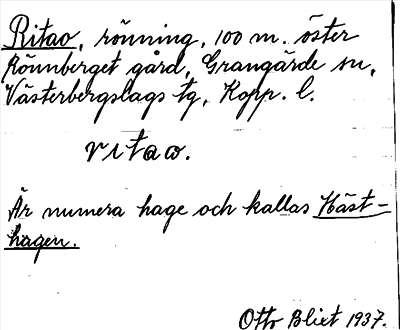 Ritao, rönning, 100 m. öster
Rönnberget gård, Grangärde sn,
Västerbergslags tg, Kopp. l.
ritao.
Är numera hage och kallas Häst-
hagen.
Otto Blixt 1937.